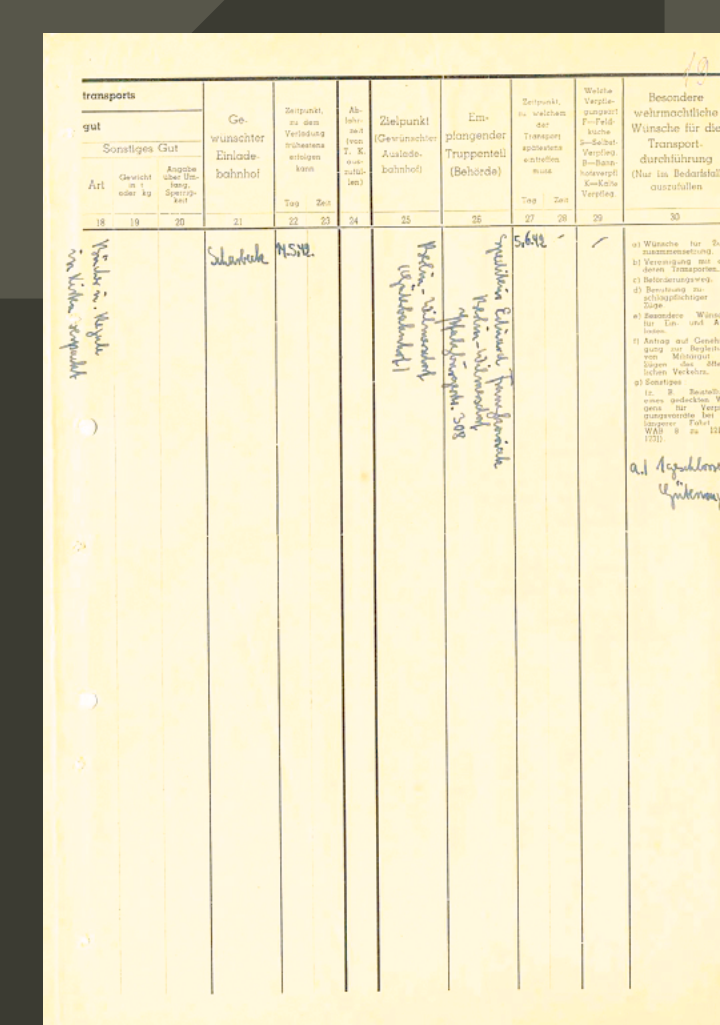 19
transports
gut
Sonstiges Gut
Art
Gewicht
in t
oder kg
Angabe
über Um-
fang,
Sperrig-
keit
Ge-
wünschter
Einlade-
bahnhof
Zeitpunkt,
zu dem
Verladung
frühestens
erfolgen
kann
Tag Zeit
Ab-
fahr-
zeit
(von
T. K.
aus-
zufül-
len)
Zielpunkt
(Gewünschter
Auslade-
bahnhof)
Em-
pfangender
Truppenteil
(Behörde)
Zeitpunkt,
zu welchem
der
Transport
spätestens
eintreffen
muss
Tag Zeit
Welche
Verpfle-
gungsart
F—Feld-
küche
S—Selbst-
Verpfleg.
B—Bahn-
hofsverpfl.
K—Kalte
Verpfleg.
Besondere
wehrmachtliche
Wünsche für die
Transport-
durchführung
(Nur im Bedarfsfall
auszufüllen
18 19 20 21 22 23 24 25 26 27 28 29 30
Bücher u. Regale
in Kisten verpackt
Schaerbeek
Berlin-Wilmersdorf
(Güterbahnhof)
Spedition Eduard
Berlin-Wilmersdorf
5.6.42 -
a) Wünsche für Zu
zusammensetzung.
b) Vereinigung mit
deren Transporten.
c) Beförderungsweg.
d) Benutzung zu-
schlagpflichtiger
Züge.
e) Besondere Wünsc
für Ein- und A
laden.
f) Antrag auf Geneh
gung zur Begleit
von Militärgut
zügen des öffe
lichen Verkehrs.
g) Sonstiges
(z. B. Beistell
eines gedeckten W
gens für Verp
gungsvorräte bei
längerer Fahrt
WAB 8 zu
a.) 1 geschlosse